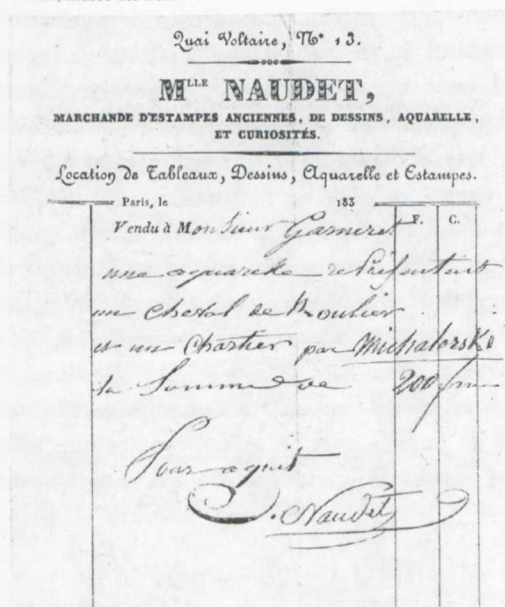 Quai Voltaire N° 13.
MLLE NAUDET,
MARCHANDE D'ESTAMPES ANCIENNES, DE DESSINS, AQUARELLE,
ET CURIOSITÉS.
Location de Tableaux, Dessins, Aquarelle et Estampes.
Paris, le 183
Vendu à Monsieur F. C.
une aquarelle représentant
un cheval de Moulier
et un Chartier par Michalorsko
la Somme de 200 f
Pour aquit
Naudet